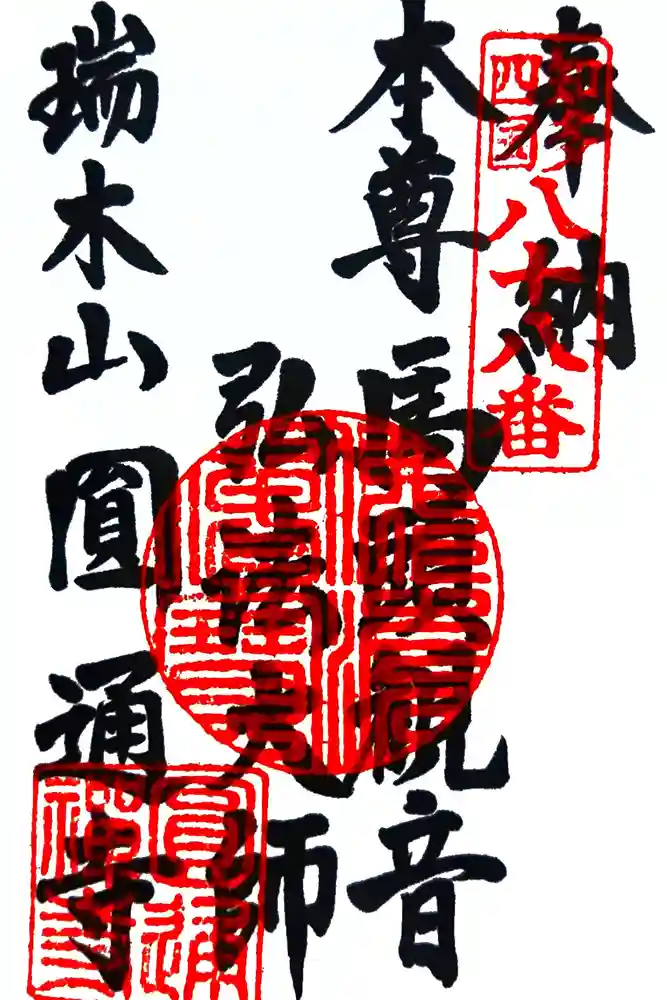 奉納
八十八番
本尊 馬頭観音
弘法大師
瑞木山 圓通寺
圓通